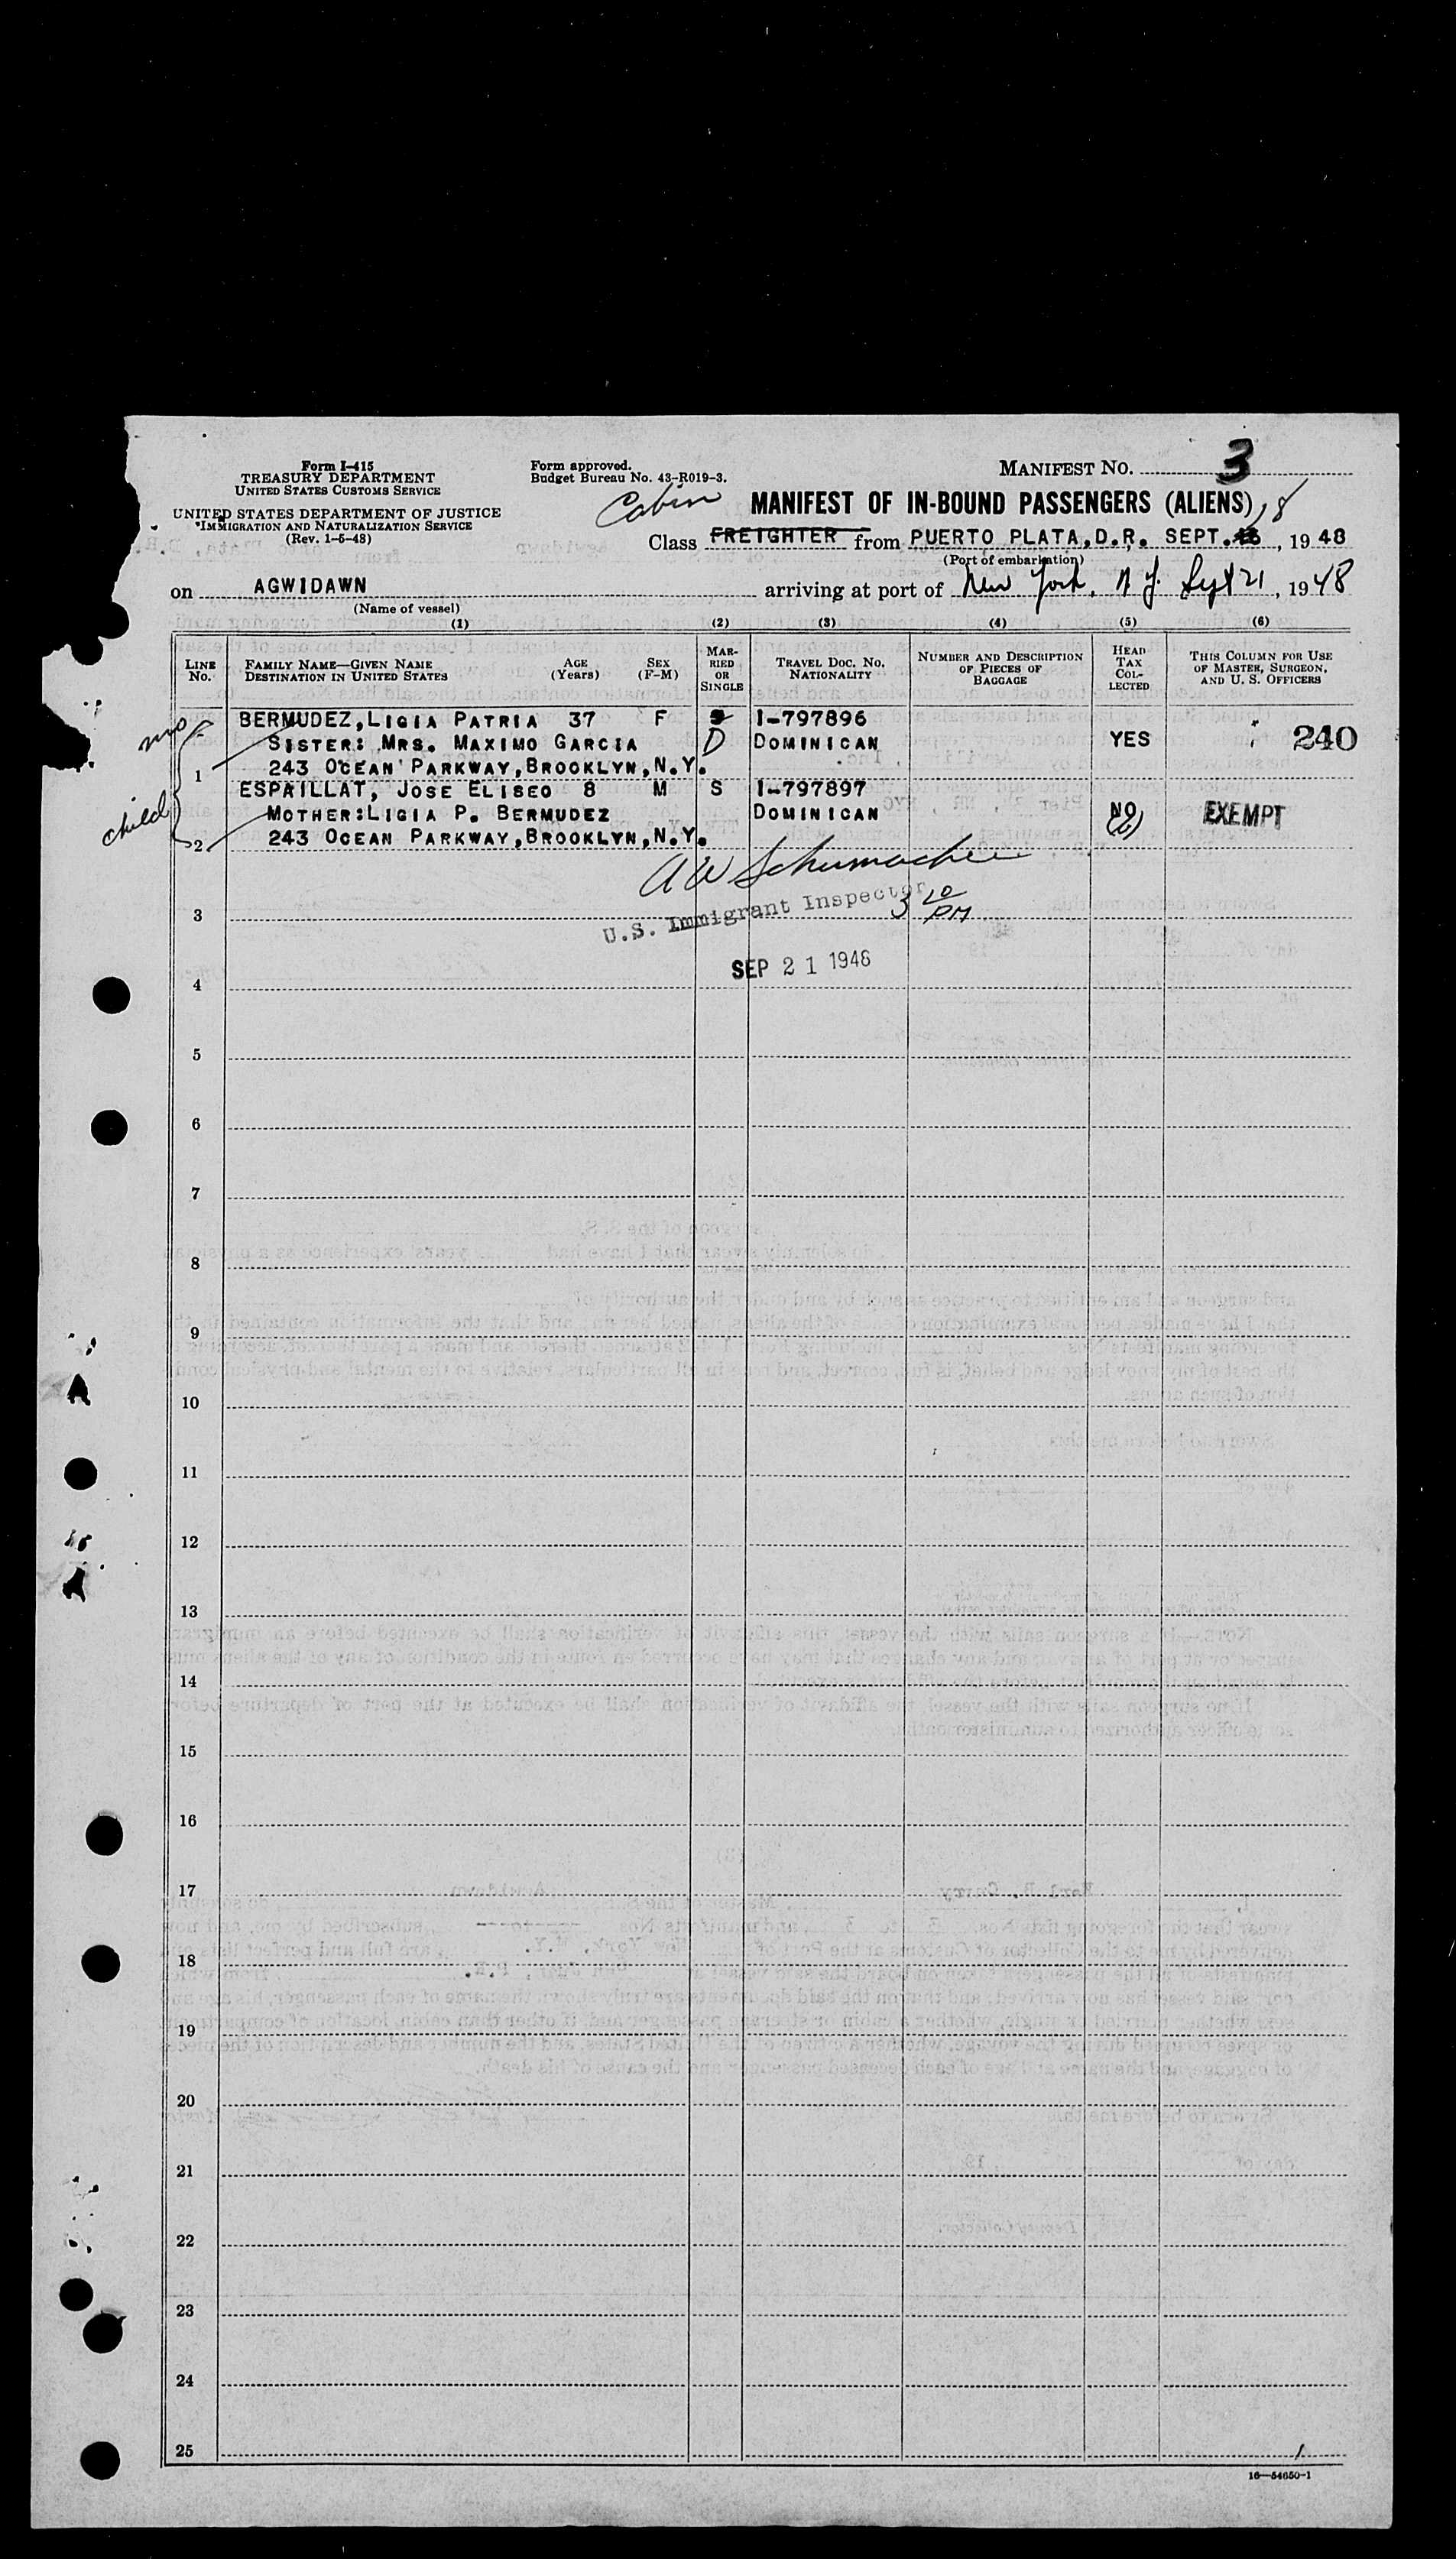 Form I-415
TREASURY DEPARTMENT
UNITED STATES CUSTOMS SERVICE
UNITED STATES DEPARTMENT OF JUSTICE
IMMIGRATION AND NATURALIZATION SERVICE
(Rev. 1-5-48)
Form approved.
Budget Bureau No. 43-R019-3.
MANIFEST NO. 3
MANIFEST OF IN-BOUND PASSENGERS (ALIENS)
Cabin
Class FREIGHTER from PUERTO PLATA, D.R. SEPT. 18, 1948
(Port of embarkation)
on AGWIDAWN arriving at port of New York, N Y. Sept 21, 1948
(Name of vessel)
(1) (2) (3) (4) (5) (6)
LINE No. FAMILY NAME—GIVEN NAME DESTINATION IN UNITED STATES AGE (Years) SEX (F-M) MARRIED OR SINGLE TRAVEL DOC. NO. NATIONALITY NUMBER AND DESCRIPTION OF PIECES OF BAGGAGE HEAD TAX COLLECTED THIS COLUMN FOR USE OF MASTER, SURGEON, AND U. S. OFFICERS
BERMUDEZ, LIGIA PATRIA 37 F I-797896
SISTER: MRS. MAXIMO GARCIA D DOMINICAN YES 240
1 243 OCEAN PARKWAY, BROOKLYN, N.Y.
ESPAILLAT, JOSE ELISEO 8 M S I-797897
child MOTHER: LIGIA P. BERMUDEZ DOMINICAN NO EXEMPT
2 243 OCEAN PARKWAY, BROOKLYN, N.Y.
A W Schumacher
3 U.S. Immigrant Inspector 3 20 PM
4 SEP 21 1948
5
6
7
8
9
10
11
12
13
14
15
16
17
18
19
20
21
22
23
24
25
16—54650-1